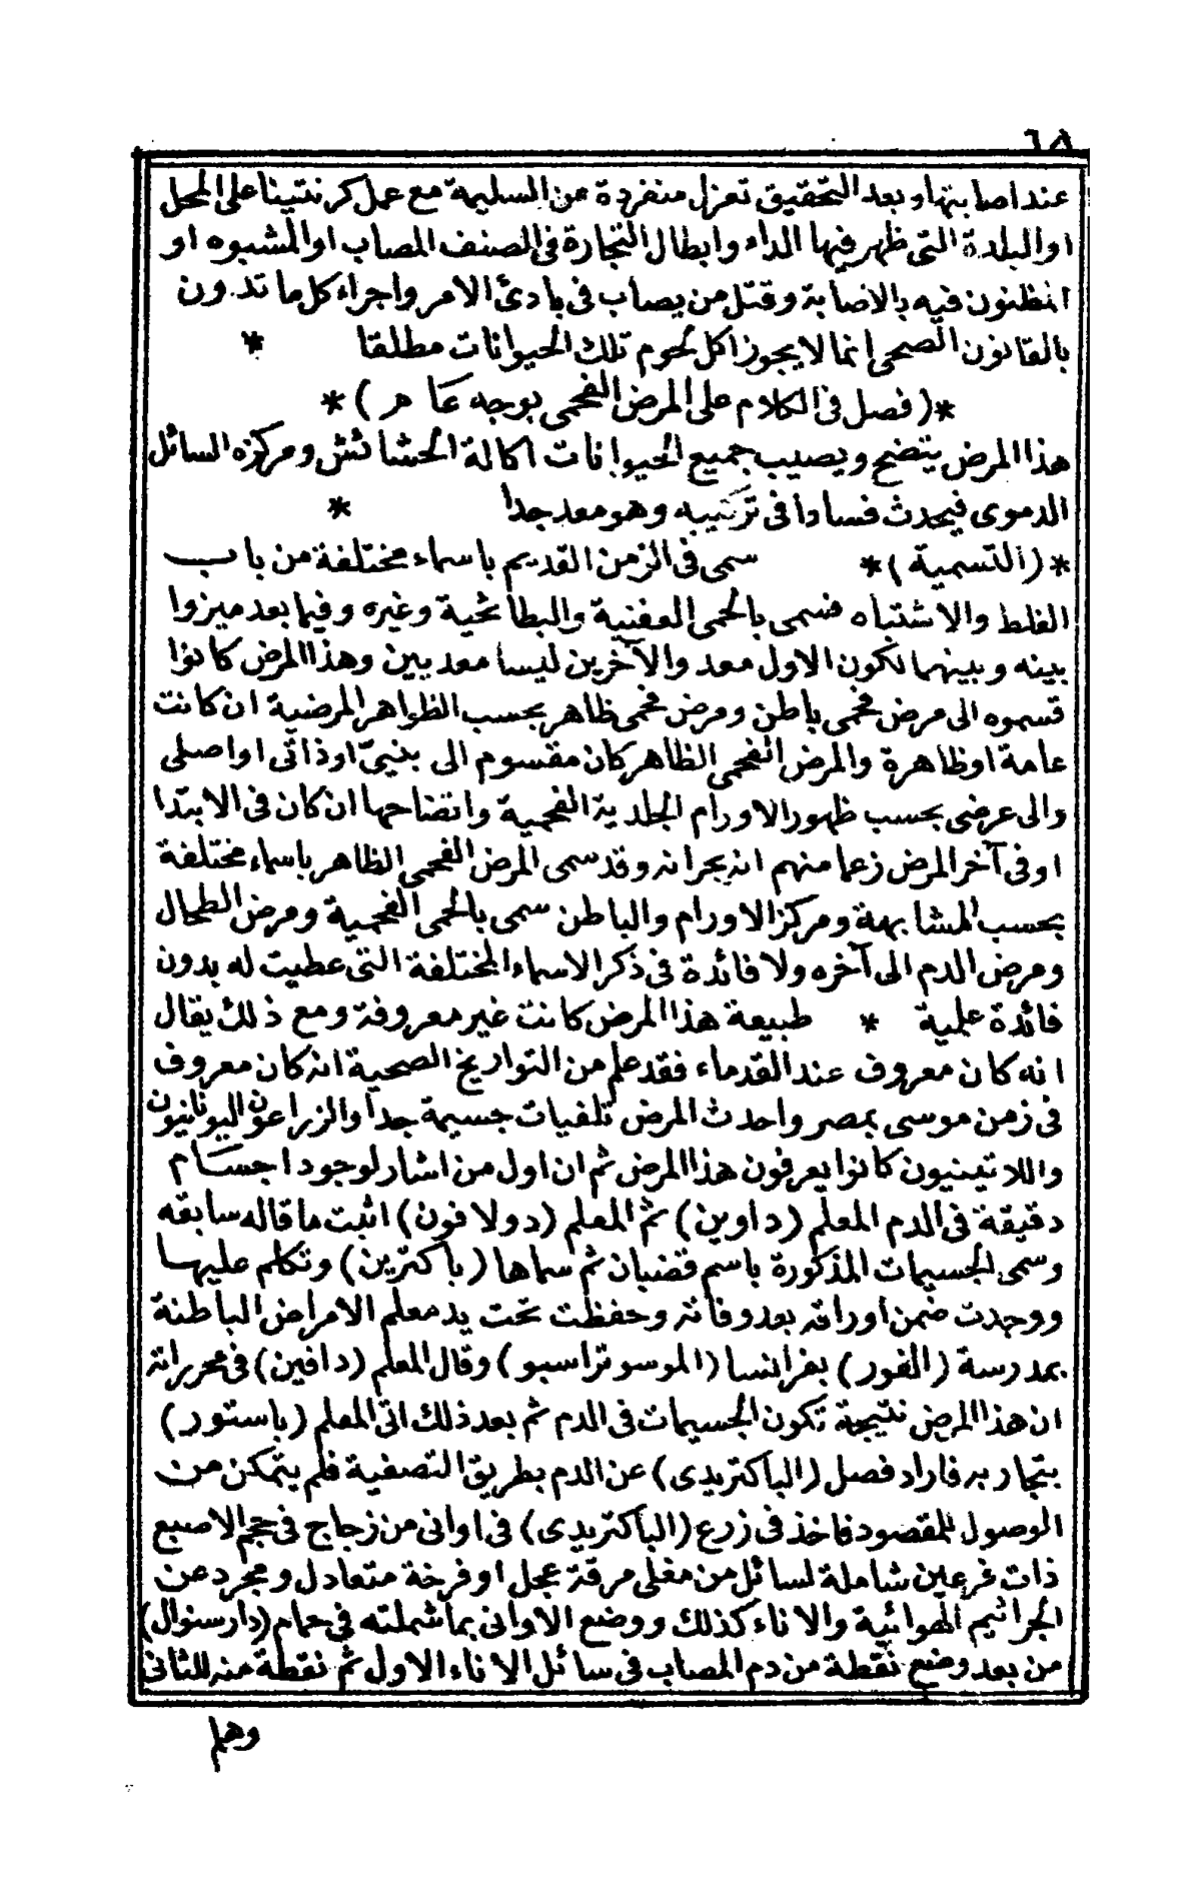 ٦٨
عند اصابتها وبعد التحقيق تعزل منفردة عن السليمة مع عمل كرنتينا على المحل
او البلدة التى ظهر فيها الداء وابطال التجارة فى الصنف المصاب او المشبوه او
المظنون فيه بالاصابة وقتل من يصاب فى بادئ الامر واجراء كل ما تدون
بالقانون الصحى انما لا يجوز اكل لحوم تلك الحيوانات مطلقا *
*(فصل فى الكلام على المرض الفحمى بوجه عام)*
هذا المرض يتضح ويصيب جميع الحيوانات اكالة الحشائش ومركزه السائل
الدموى فيحدث فسادا فى تركيبه وهو معد جدا *
*(التسمية)* سمى فى الزمن القديم باسماء مختلفة من باب
الغلط والاشتباه فسمى بالحمى العفنية والبطائحية وغيره وفيما بعد ميزوا
بينه وبينهما لكون الاول معد والآخرين ليسا معديين وهذا المرض كانوا
قسموه الى مرض فحمى باطن ومرض فحمى ظاهر بحسب الظواهر المرضية ان كانت
عامة او ظاهرة والمرض الفحمى الظاهر كان مقسوم الى بنيىّ او ذاتى او اصلى
والى عرضى بحسب ظهور الاورام الجلدية الفحمية واتضاحها ان كان فى الابتدا
او فى آخر المرض زعما منهم انه بحرانه وقد سمى المرض الفحمى الظاهر باسماء مختلفة
بحسب المشابهة ومركز الاورام والباطن سمى بالحمى الفحمية ومرض الطحال
ومرض الدم الى آخره ولا فائدة فى ذكر الاسماء المختلفة التى عطيت له بدون
فائدة علمية * طبيعة هذا المرض كانت غير معروفة ومع ذلك يقال
انه كان معروف عند القدماء فقد علم من التواريخ الصحية انه كان معروف
فى زمن موسى بمصر واحدث المرض تلفيات جسيمة جدا والزراعون اليونانيون
واللاتينيون كانوا يعرفون هذا المرض ثم ان اول من اشار لوجود اجسام
دقيقة فى الدم المعلم (داوين) ثم المعلم (دولافون) اثبت ما قاله سابقه
وسمى الجسيمات المذكورة باسم قضبان ثم سماها (باكترين) وتكلم عليها
ووجدت ضمن اوراقه بعد وفاته وحفظت تحت يد معلم الامراض الباطنة
بمدرسة (الفور) بفرانسا (الموسو تراسبو) وقال المعلم (دافين) فى محرراته
ان هذا المرض نتيجة تكون الجسيمات فى الدم ثم بعد ذلك اتى المعلم (باستور)
بتجاربه فاراد فصل (الباكتريدى) عن الدم بطريق التصفية فلم يتمكن من
الوصول للمقصود فاخذ فى زرع (الباكتريدى) فى اوانى من زجاج فى حجم الاصبع
ذات فرعين شاملة لسائل من مغلى مرقة عجل او فرخة متعادل ومجرد عن
الجراثيم الهوائية والاناء كذلك ووضع الاوانى بما شملته فى حمام (دارسنوال)
من بعد وضع نقطة من دم المصاب فى سائل الاناء الاول ثم نقطة منه للثانى
وهلم